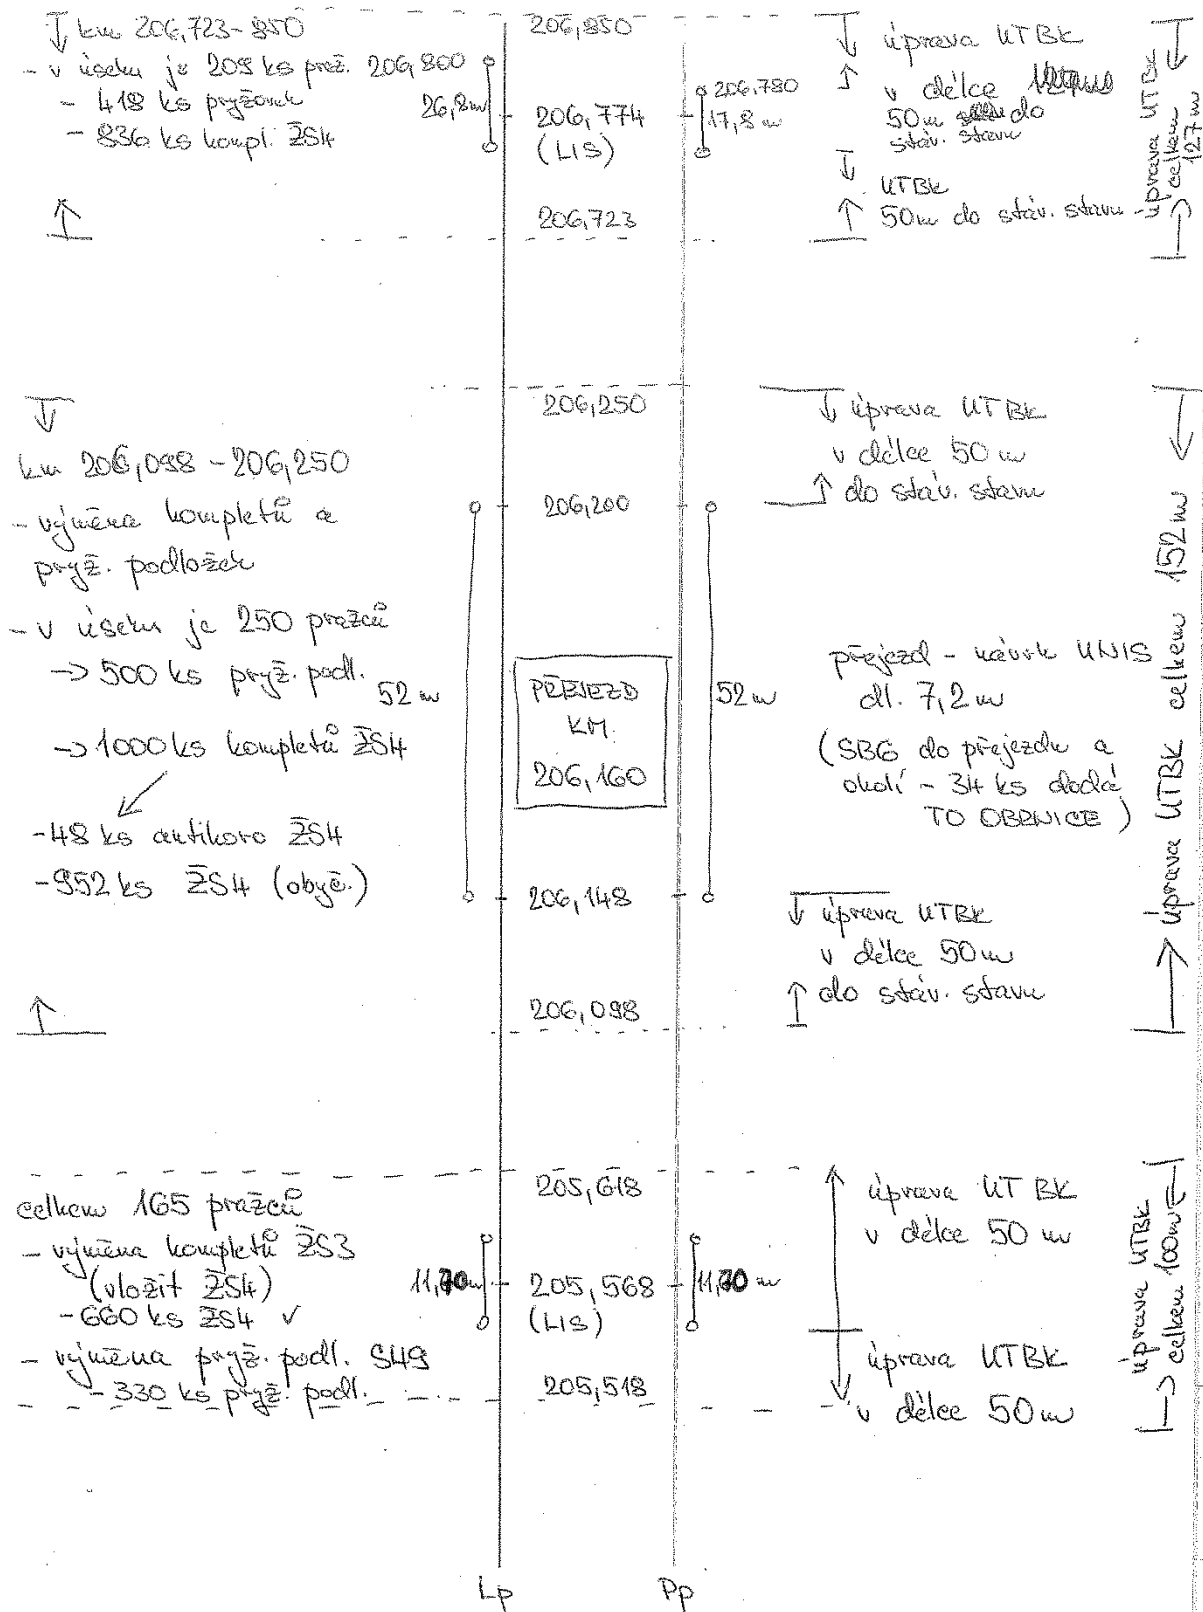 km 206,723-850
- v úseku je 209 ks praž.
- 418 ks pryžovek
- 836 ks kompl. ŽS4
206,800
26,8m
206,850
206,774
(LIS)
206,723
206,780
17,8 m
úprava UTBK
v délce
50m do
stáv. stavu
UTBK
50m do stáv. stavu
úprava UTBK
celkem
127 m
km 206,098 - 206,250
- výměna kompletů a
pryž. podložek
- v úseku je 250 pražců
-> 500 ks pryž. podl.
-> 1000 ks kompletů ŽS4
- 48 ks antikoro ŽS4
- 952 ks ŽS4 (obyč.)
52 m
206,250
206,200
PŘEJEZD
KM.
206,160
206,148
206,098
52 m
úprava UTBK
v délce 50 m
do stáv. stavu
přejezd - návrh UNIS
dl. 7,2 m
(SB6 do přejezdu a
okolí - 34 ks dodá
TO OBRNICE)
úprava UTBK
v délce 50 m
do stáv. stavu
úprava UTBK celkem 152m
celkem 165 pražců
- výměna kompletů ŽS3
(vložit ŽS4)
- 660 ks ŽS4 ✓
- výměna pryž. podl. S49
- 330 ks pryž. podl.
205,618
205,568
(LIS)
205,518
úprava UTBK
v délce 50 m
úprava UTBK
v délce 50 m
úprava UTBK
celkem 100m
Lp
Pp